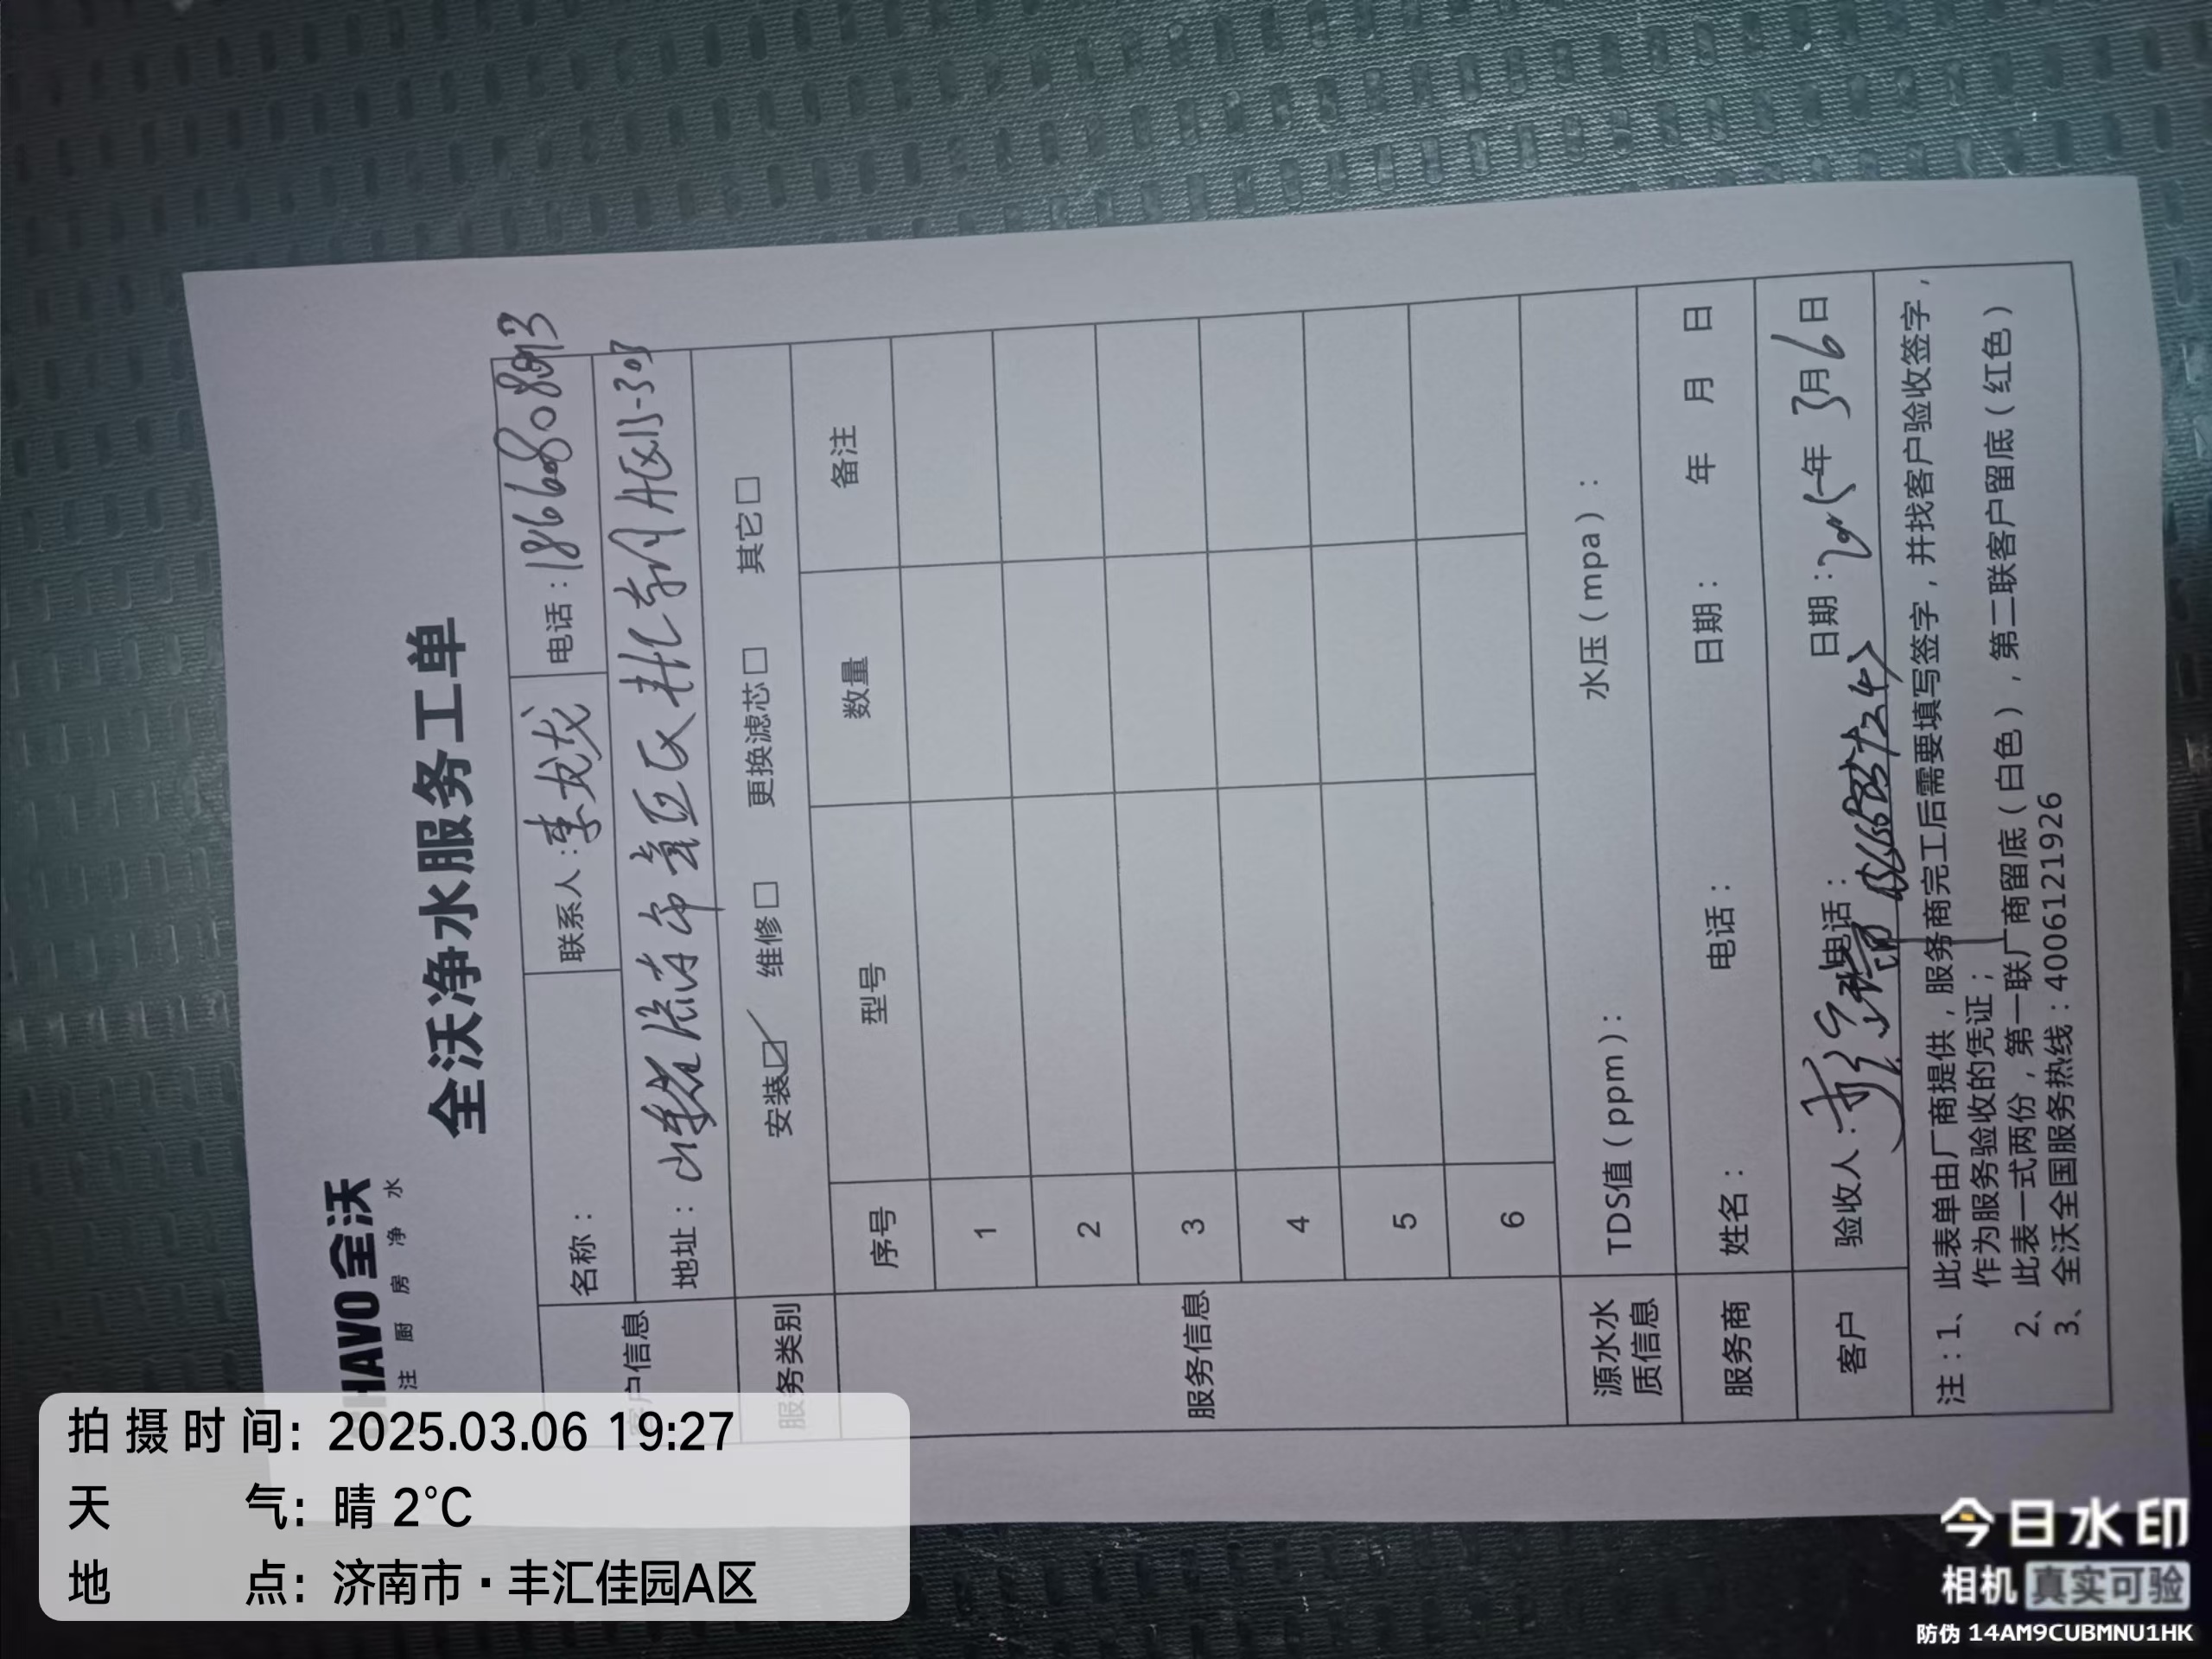 HAVO 全沃
注 厨 房 净 水
全沃净水服务工单
客户信息 名称： 联系人：李龙龙 电话：186
地址：山东省济南市
服务类别 安装☑ 维修□ 更换滤芯□ 其它□
服务信息 序号 型号 数量 备注
1
2
3
4
5
6
源水水质信息 TDS值（ppm）： 水压（mpa）：
服务商 姓名： 电话： 日期： 年 月 日
客户 验收人： 电话： 日期：2025年 3月6日
注：1、此表单由厂商提供，服务商完工后需要填写签字，并找客户验收签字，
作为服务验收的凭证；
2、此表一式两份，第一联厂商留底（白色），第二联客户留底（红色）
3、全沃全国服务热线：4006121926
拍摄时间：2025.03.06 19:27
天 气：晴 2°C
地 点：济南市·丰汇佳园A区
今日水印
相机 真实可验
防伪 14AM9CUBMNU1HK